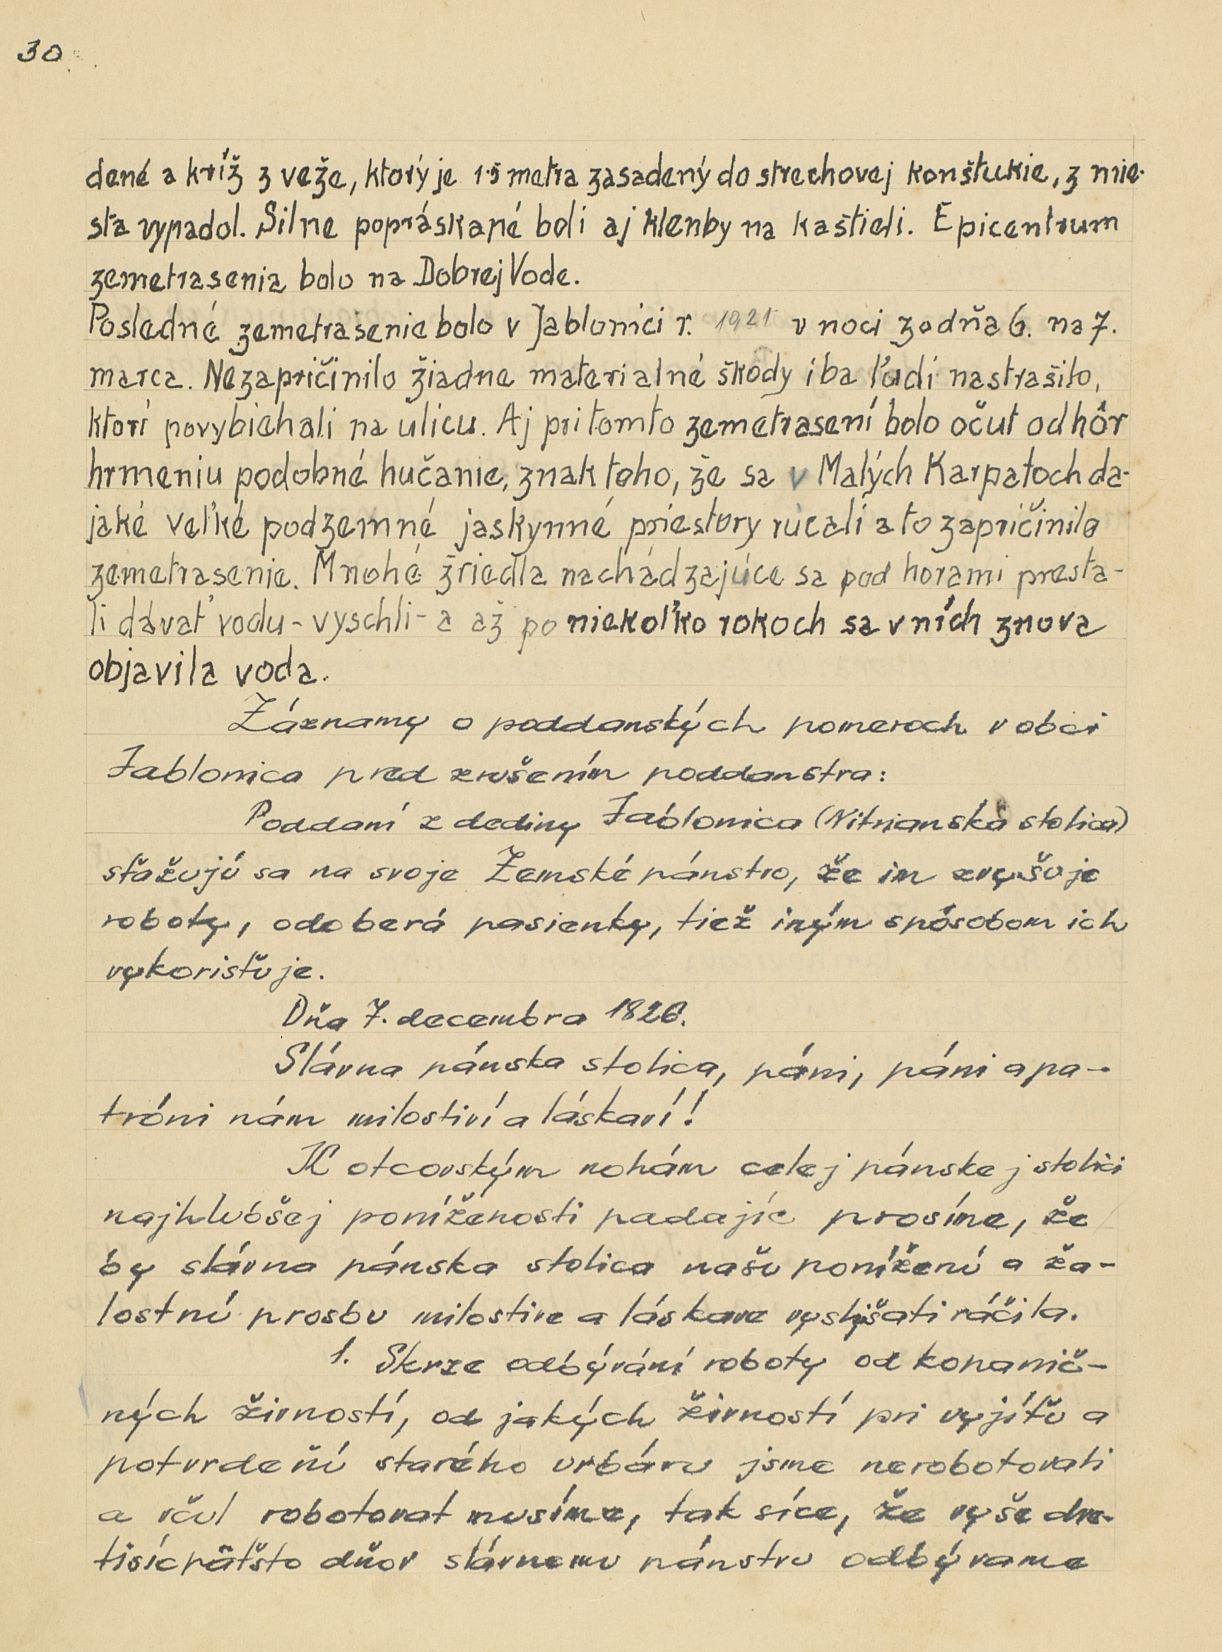 30
dené a kríž z veže, ktorý je 1·5 metra zasadený do strechovej konštukie, z mie-
sta vypadol. Silne popráskané boli aj klenby na kaštieli. Epicentrum
zemetrasenia bolo na Dobrej Vode.
Posledné zemetrasenie bolo v Jablonici r. 1921 v noci zo dňa 6. na 7.
marca. Nezapričinilo žiadne materialné škody iba ľudí nastrašilo,
ktorí povybiehali na ulicu. Aj pri tomto zemetrasení bolo očuť od hôr
hrmeniu podobné hučanie, znak toho, že sa v Malých Karpatoch da-
jaké veľké podzemné jaskynné priestory rúcali a to zapričinilo
zemetrasenie. Mnohé žriedla nachádzajúce sa pod horami presta-
li dávať vodu - vyschli - a až po niekoľko rokoch sa v ních znova
objavila voda.
Záznamy o poddanských pomeroch v obci
Jablonica pred zrušením poddanstva:
Poddaní z dediny Jablonica (Nitrianska stolica)
sťažujú sa na svoje Zemské pánstvo, že im zvyšuje
roboty, odoberá pasienky, tiež iným spôsobom ich
vykorisťuje.
Dňa 7. decembra 1826.
Slávna pánska stolica, páni, páni a pa-
tróni nám milostiví a láskaví!
K otcovským nohám celej pánskej stolici
najhlubšej poníženosti padajíc prosíme, že
by slávna pánska stolica našu poníženú a ža-
lostnú prosbu milostive a láskave vyslyšati ráčila.
1. Skrze odbývání roboty od kopanič-
ných živností, od jakých živností pri vyjíťu a
potvrdeňí starého urbáru jsme nerobotovali
a včul robotovat musíme, tak síce, že vyše dve-
tisícpäťsto dňov slávnemu pánstvu odbývame